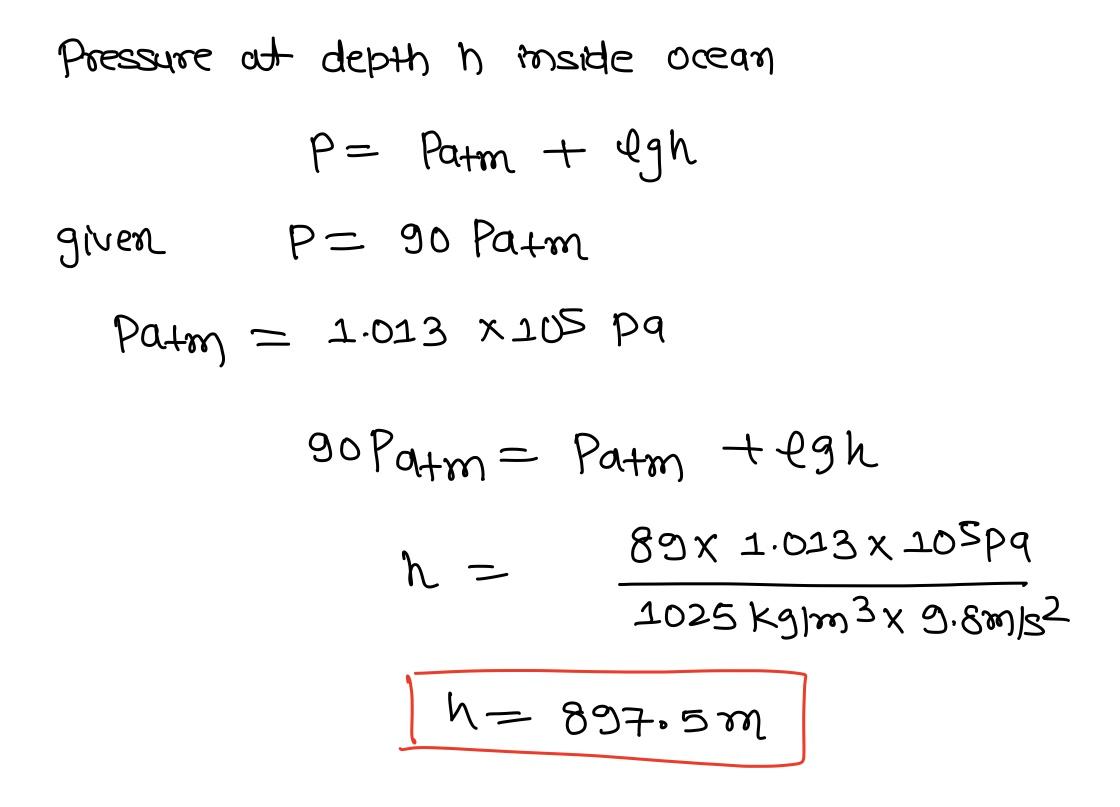 Pressure at depth h inside ocean
P = Patm + ρgh
given P = 90 Patm
Patm = 1.013 × 10⁵ Pa
90 Patm = Patm + ρgh
h = 89 × 1.013 × 10⁵ Pa / 1025 kg/m³ × 9.8 m/s²
h = 897.5 m